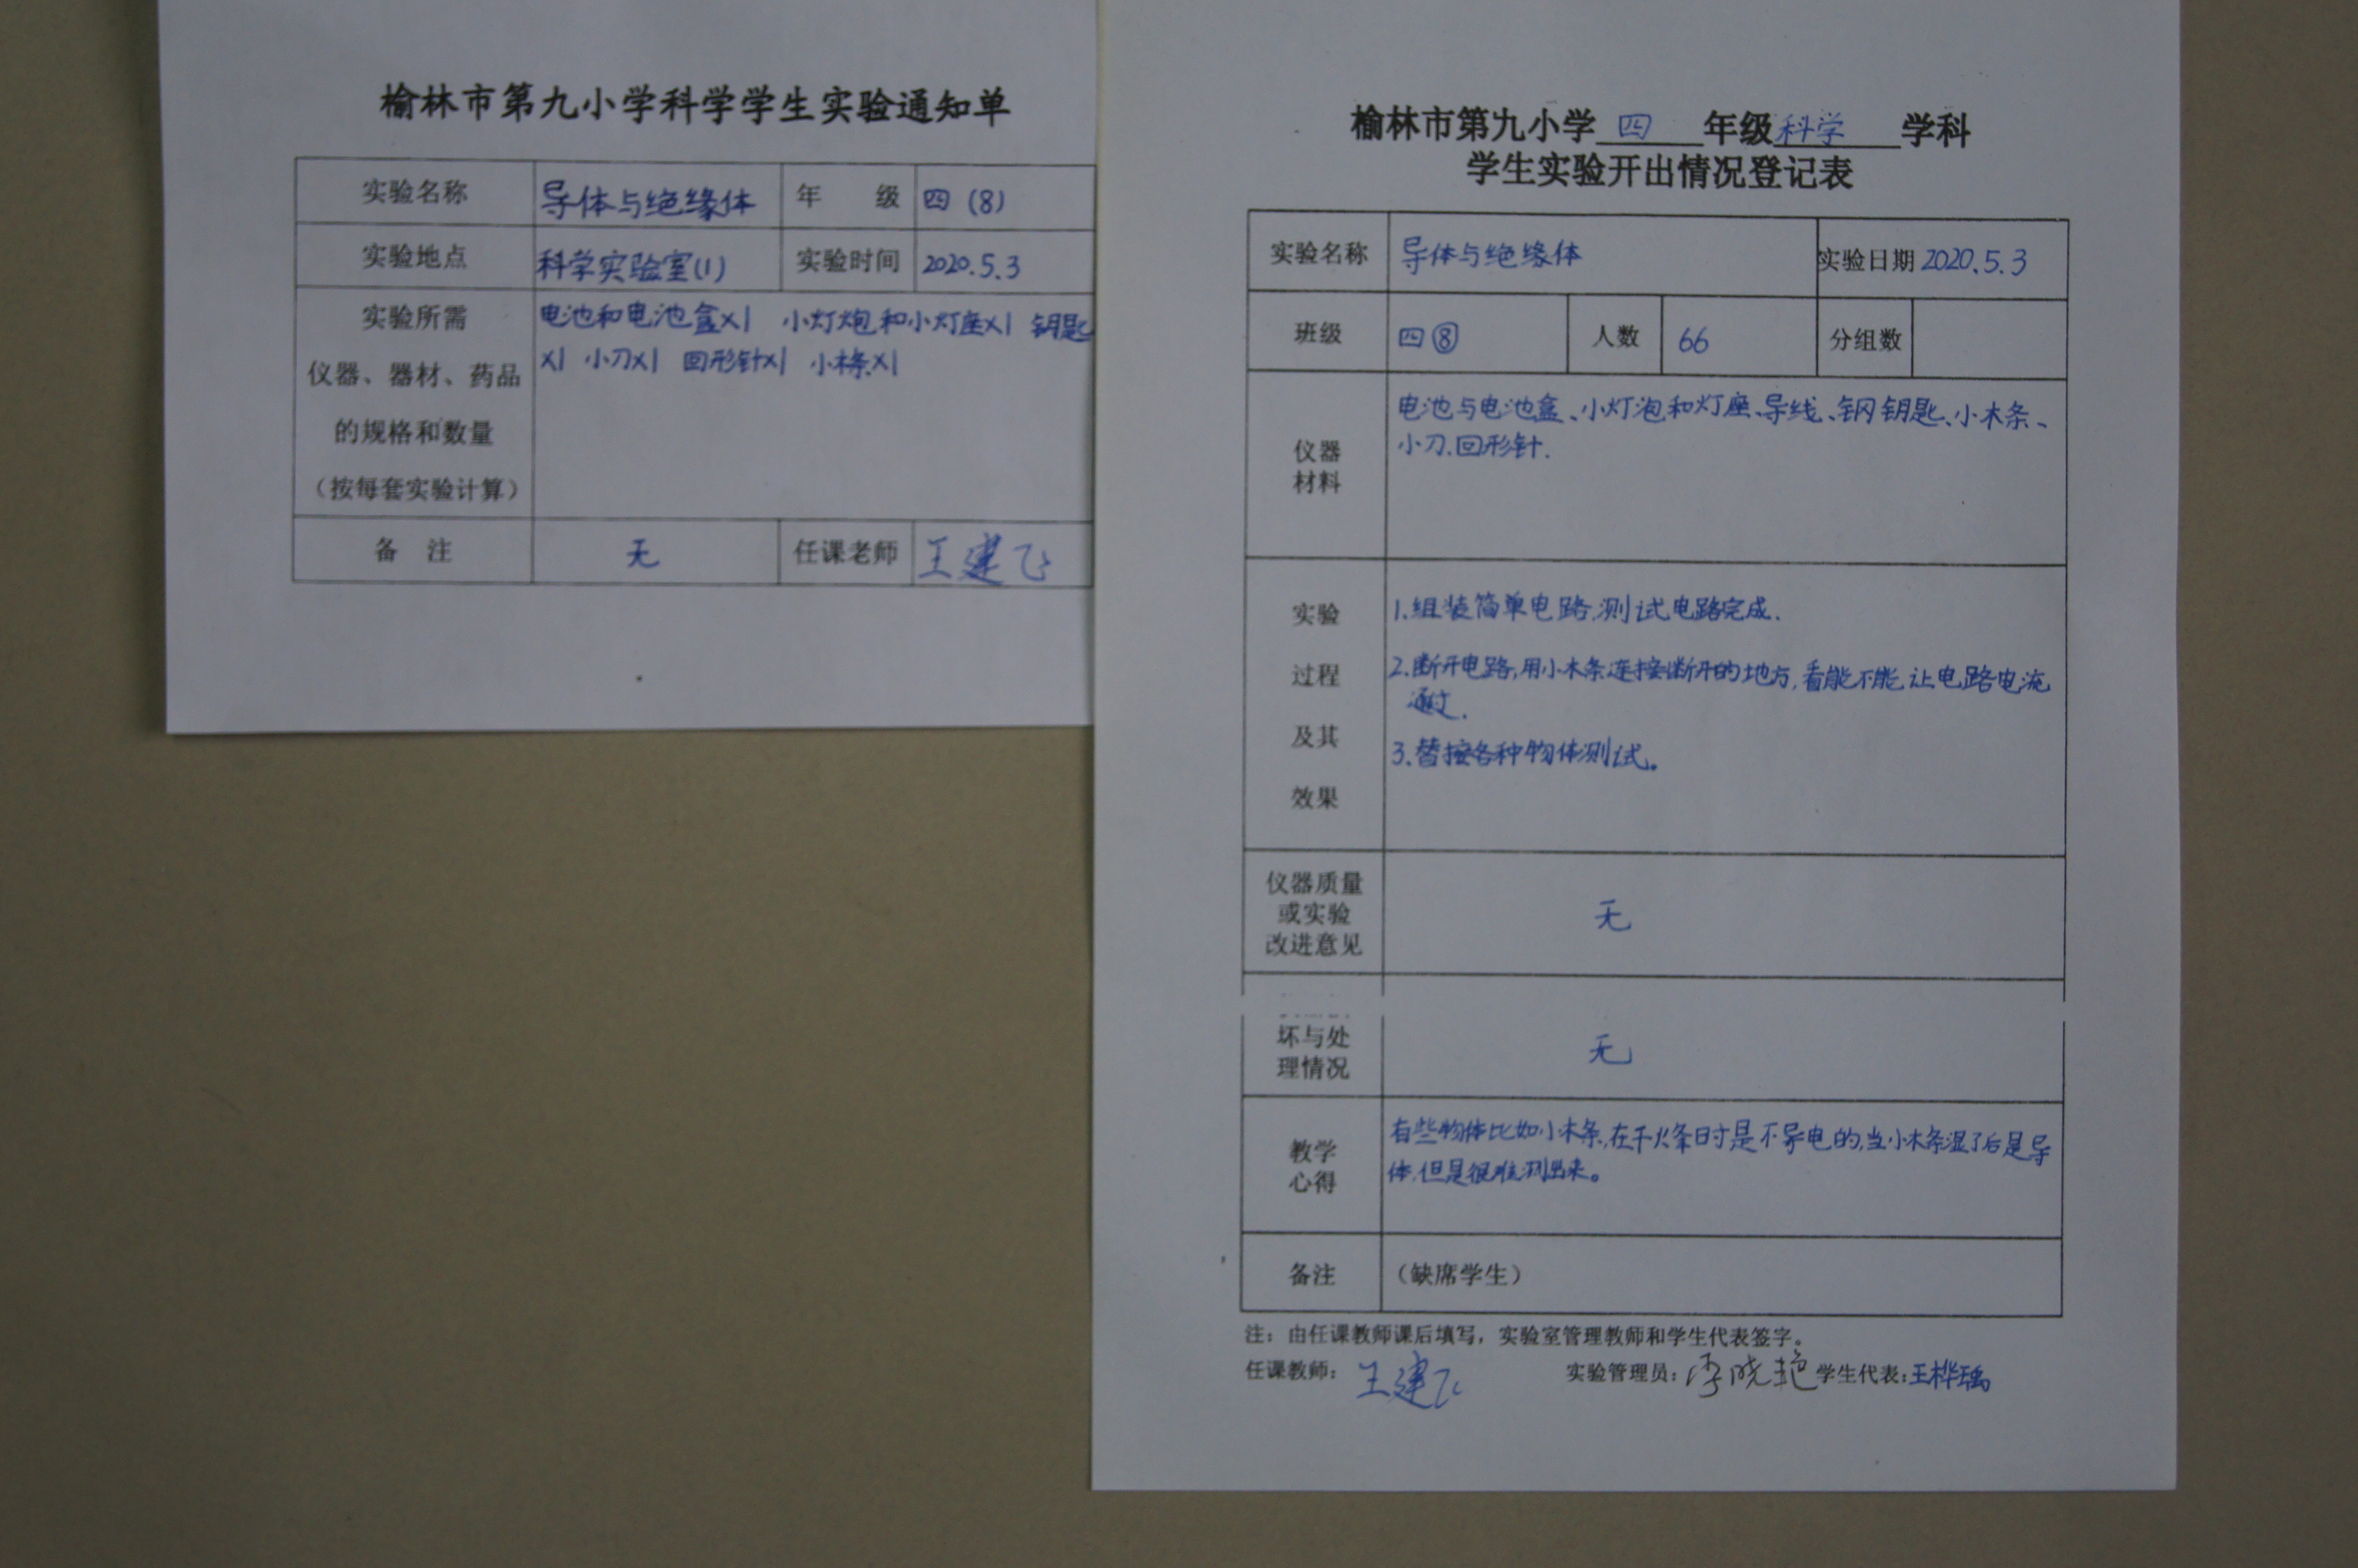 榆林市第九小学科学学生实验通知单
实验名称 导体与绝缘体 年 级 四(8)
实验地点 科学实验室(1) 实验时间 2020.5.3
实验所需
仪器、器材、药品
的规格和数量
（按每套实验计算）
电池和电池盒×1 小灯炮和小灯座×1 钥匙
×1 小刀×1 回形针×1 小木条×1
备 注 无 任课老师 王建飞
榆林市第九小学 四 年级 科学 学科
学生实验开出情况登记表
实验名称 导体与绝缘体 实验日期 2020.5.3
班级 四⑧ 人数 66 分组数
仪器
材料
电池与电池盒、小灯泡和灯座、导线、钢钥匙、小木条、
小刀、回形针.
实验
过程
及其
效果
1.组装简单电路,测试电路完成.
2.断开电路,用小木条连接断开的地方,看能不能让电路电流
通过.
3.替接各种物体测试。
仪器质量
或实验
改进意见
无
坏与处
理情况
无
教学
心得
有些物体比如小木条,在干燥时是不导电的,当小木条湿了后是导
体,但是很难测出来。
备注 （缺席学生）
注：由任课教师课后填写，实验室管理教师和学生代表签字。
任课教师：王建飞 实验管理员：李晓艳 学生代表：王桦瑀